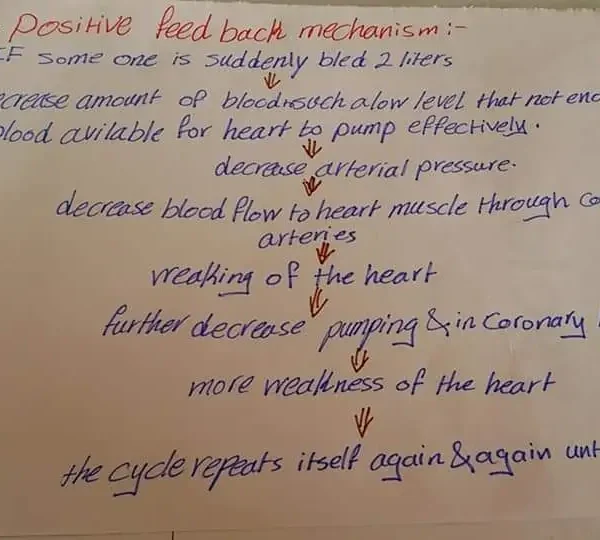 Positive feed back mechanism:-
IF some one is suddenly bled 2 liters
ecrease amount of blood such a low level that not eno
blood avilable for heart to pump effectively.
decrease arterial pressure.
decrease blood flow to heart muscle through co
arteries
weaking of the heart
further decrease pumping & in coronary
more weakness of the heart
the cycle repeats itself again & again unt